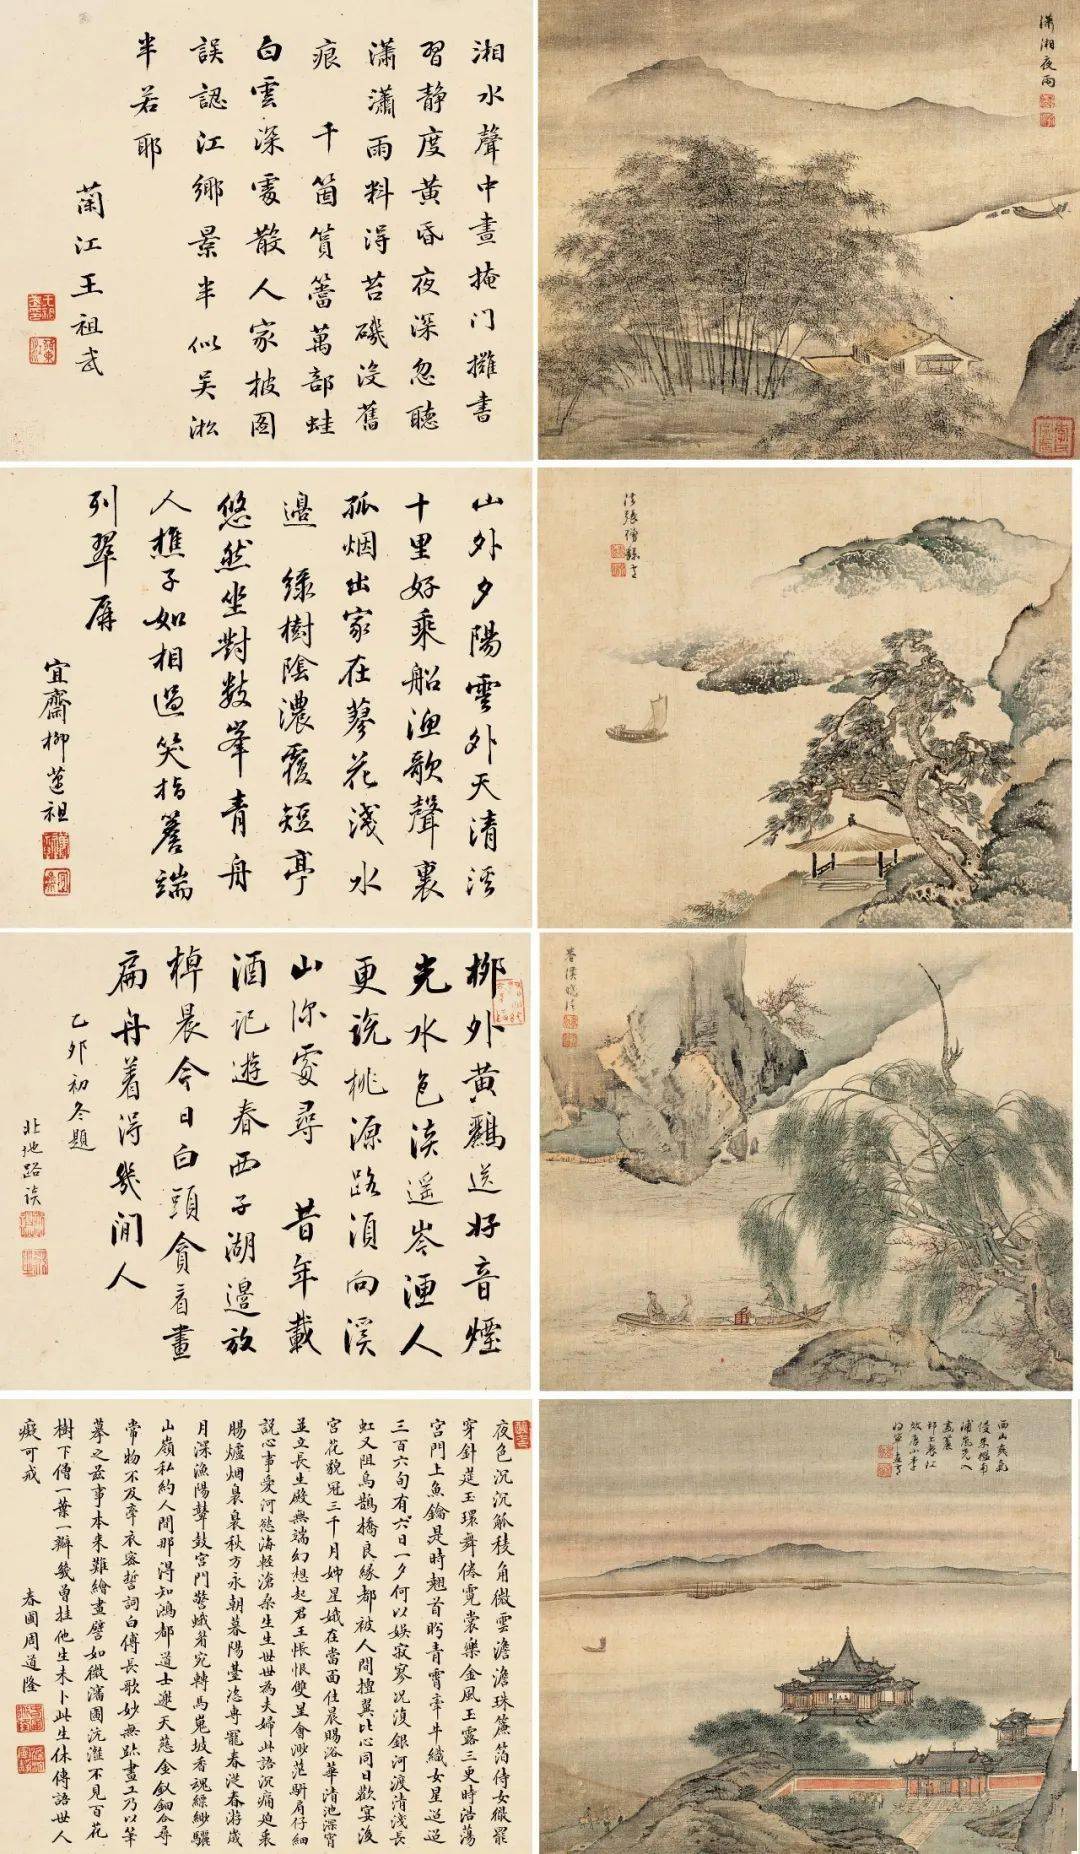 湘水聲中晝掩門擁書
習靜度黃昏夜深忽聽
瀟瀟雨料得苔磯沒舊
痕 千箇篔簹萬部蛙
白雲深處散人家披圖
誤認江鄉景半似吳淞
半若耶
蘭江王祖武
瀟湘夜雨
山外夕陽雲外天清溪
十里好乘船漁歌聲裏
孤烟出家在蓼花淺水
邊 綠樹陰濃覆短亭
悠然坐對數峯青舟
人樵子如相過笑指簷端
列翠屏
宜齋柳蓮祖
法張僧繇意
柳外黃鸝送好音煙
光水色淡遙岑漚人
更說桃源路須向溪
山深處尋 昔年載
酒記遊春西子湖邊放
棹晨今日白頭貪看畫
扁舟着得幾閒人
乙卯初冬題
北地路談
春溪曉泛
夜色沉沉觚稜角微雲澹澹珠簾箔侍女微罷
穿針是玉環舞倦霓裳樂金風玉露三更時浩蕩
宮門上魚鑰是時翹首盼青霄牽牛織女星迢迢
三百六旬有六日一夕何以娛寂寥况復銀河渡清淺長
虹又阻烏鵲橋良緣都被人間擅翼比心同日歡宴後
宮花貌冠三千月姊星娥在當面住晨賜浴華清池深宵
並立長生殿無端幻想起君王悵恨雙星會渺茫駢肩仔細
說心事愛河慾海輕滄桑生生世世為夫婦此語沉痛迴柔
腸爐烟裊裊秋方永朝暮陽臺恣專寵春從春游歲
月深漁陽鼙鼓宮門警蛾眉宛轉馬嵬坡香魂縹緲驪
山嶺私約人間那得知鴻都道士邀天慈金釵鈿合尋
常物不及牽衣密誓詞白傅長歌妙無跡畫工乃以筆
摹之茲事本来難繪畫譬如微瀋圖沆瀣不見百花
樹下僧一葉一瓣幾曾挂他生未卜此生休傳語世人
癡可戒
春圃周道隆
西山爽氣